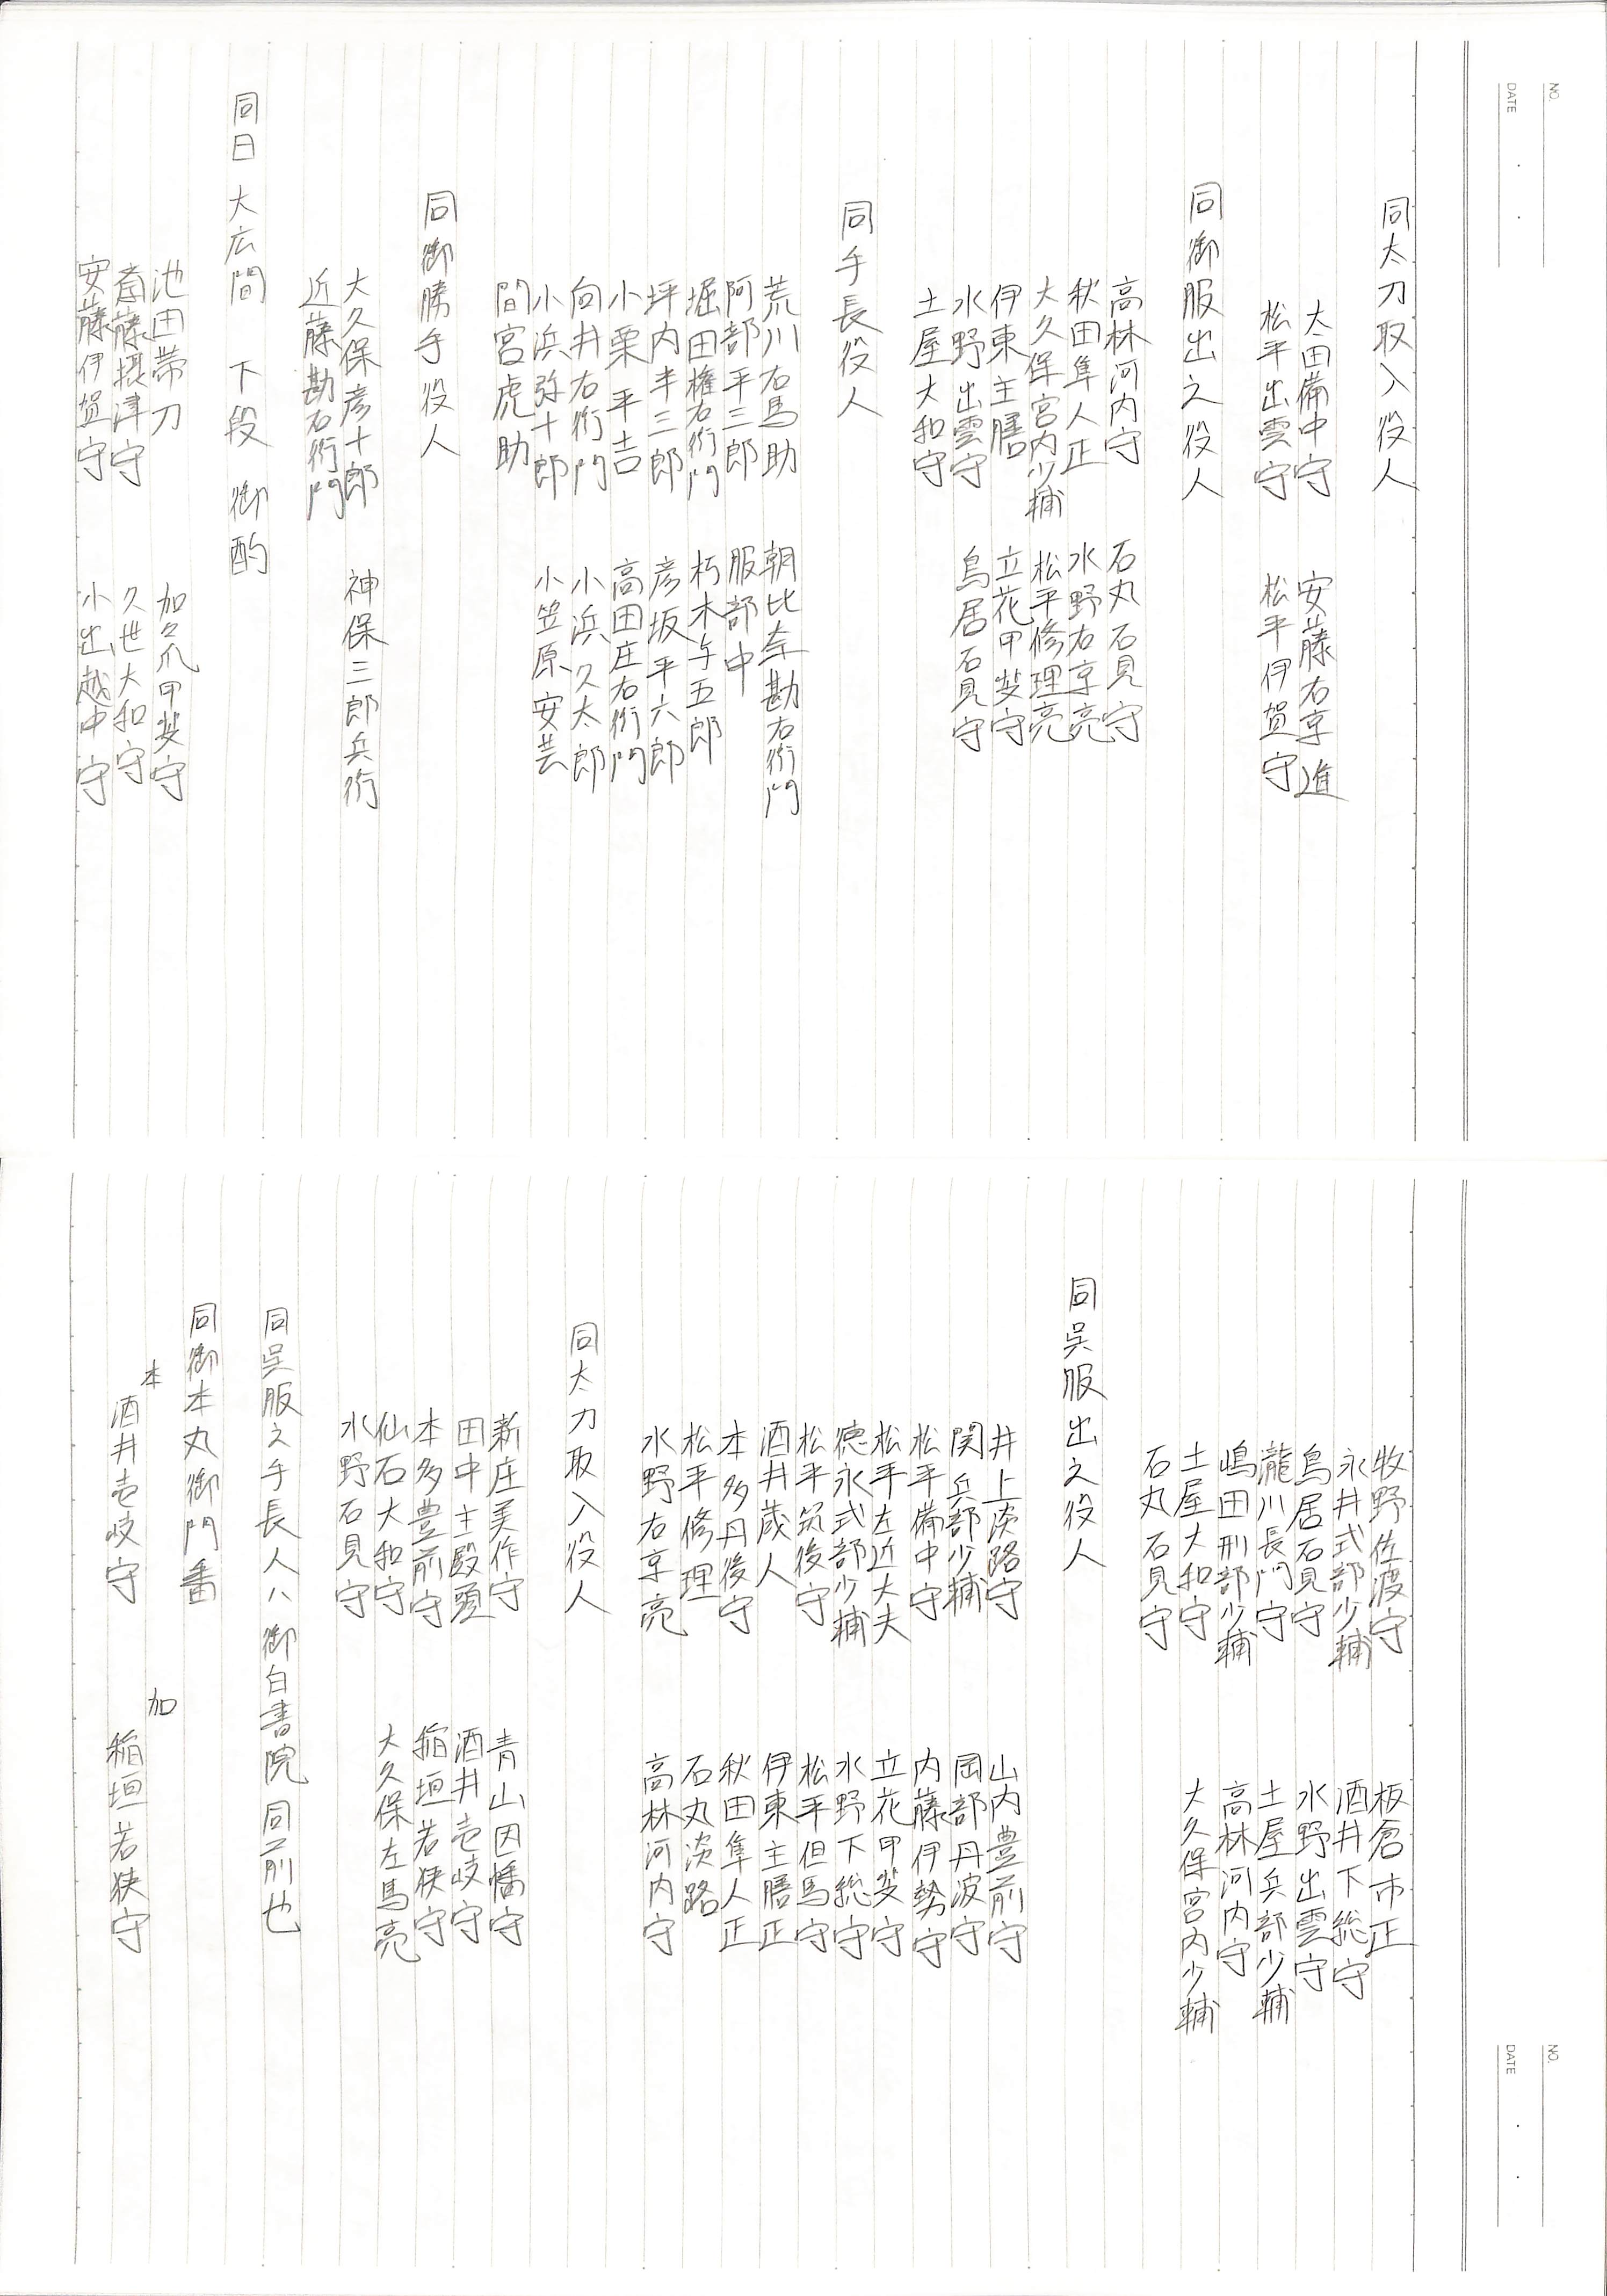 NO.
DATE
同太刀取入役人
太田備中守 安藤右京進
松平出雲守 松平伊賀守
同御服出之役人
高林河内守 石丸石見守
秋田隼人正 水野右京亮
大久保宮内少輔 松平修理亮
伊東主膳 立花甲斐守
水野出雲守 鳥居石見守
土屋大和守
同手長役人
荒川右馬助 朝比奈勘右衛門
阿部平三郎 服部中
堀田権右衛門 朽木与五郎
坪内半三郎 彦坂平六郎
小栗平吉 高田庄右衛門
向井右衛門 小浜久太郎
小浜弥十郎 小笠原安芸
間宮虎助
同御勝手役人
大久保彦十郎 神保三郎兵衛
近藤勘右衛門
同日 大広間 下段 御酌
池田帯刀 加々爪甲斐守
斎藤摂津守 久世大和守
安藤伊賀守 小出越中守
NO.
DATE
牧野佐渡守 板倉市正
永井式部少輔 酒井下総守
鳥居石見守 水野出雲守
瀧川長門守 土屋兵部少輔
嶋田刑部少輔 高林河内守
土屋大和守 大久保宮内少輔
石丸石見守
同呉服出之役人
井上淡路守 山内豊前守
関兵部少輔 岡部丹波守
松平備中守 内藤伊勢守
松平左近大夫 立花甲斐守
徳永式部少輔 水野下総守
松平筑後守 松平但馬守
酒井蔵人 伊東主膳正
本多丹後守 秋田隼人正
松平修理 石丸淡路
水野右京亮 高林河内守
同太刀取入役人
新庄美作守 青山因幡守
田中主殿頭 酒井壱岐守
本多豊前守 稲垣若狭守
仙石大和守 大久保左馬亮
水野石見守
同呉服之手長人ハ御白書院同前也
同御本丸御門番
本 酒井壱岐守 加 稲垣若狭守